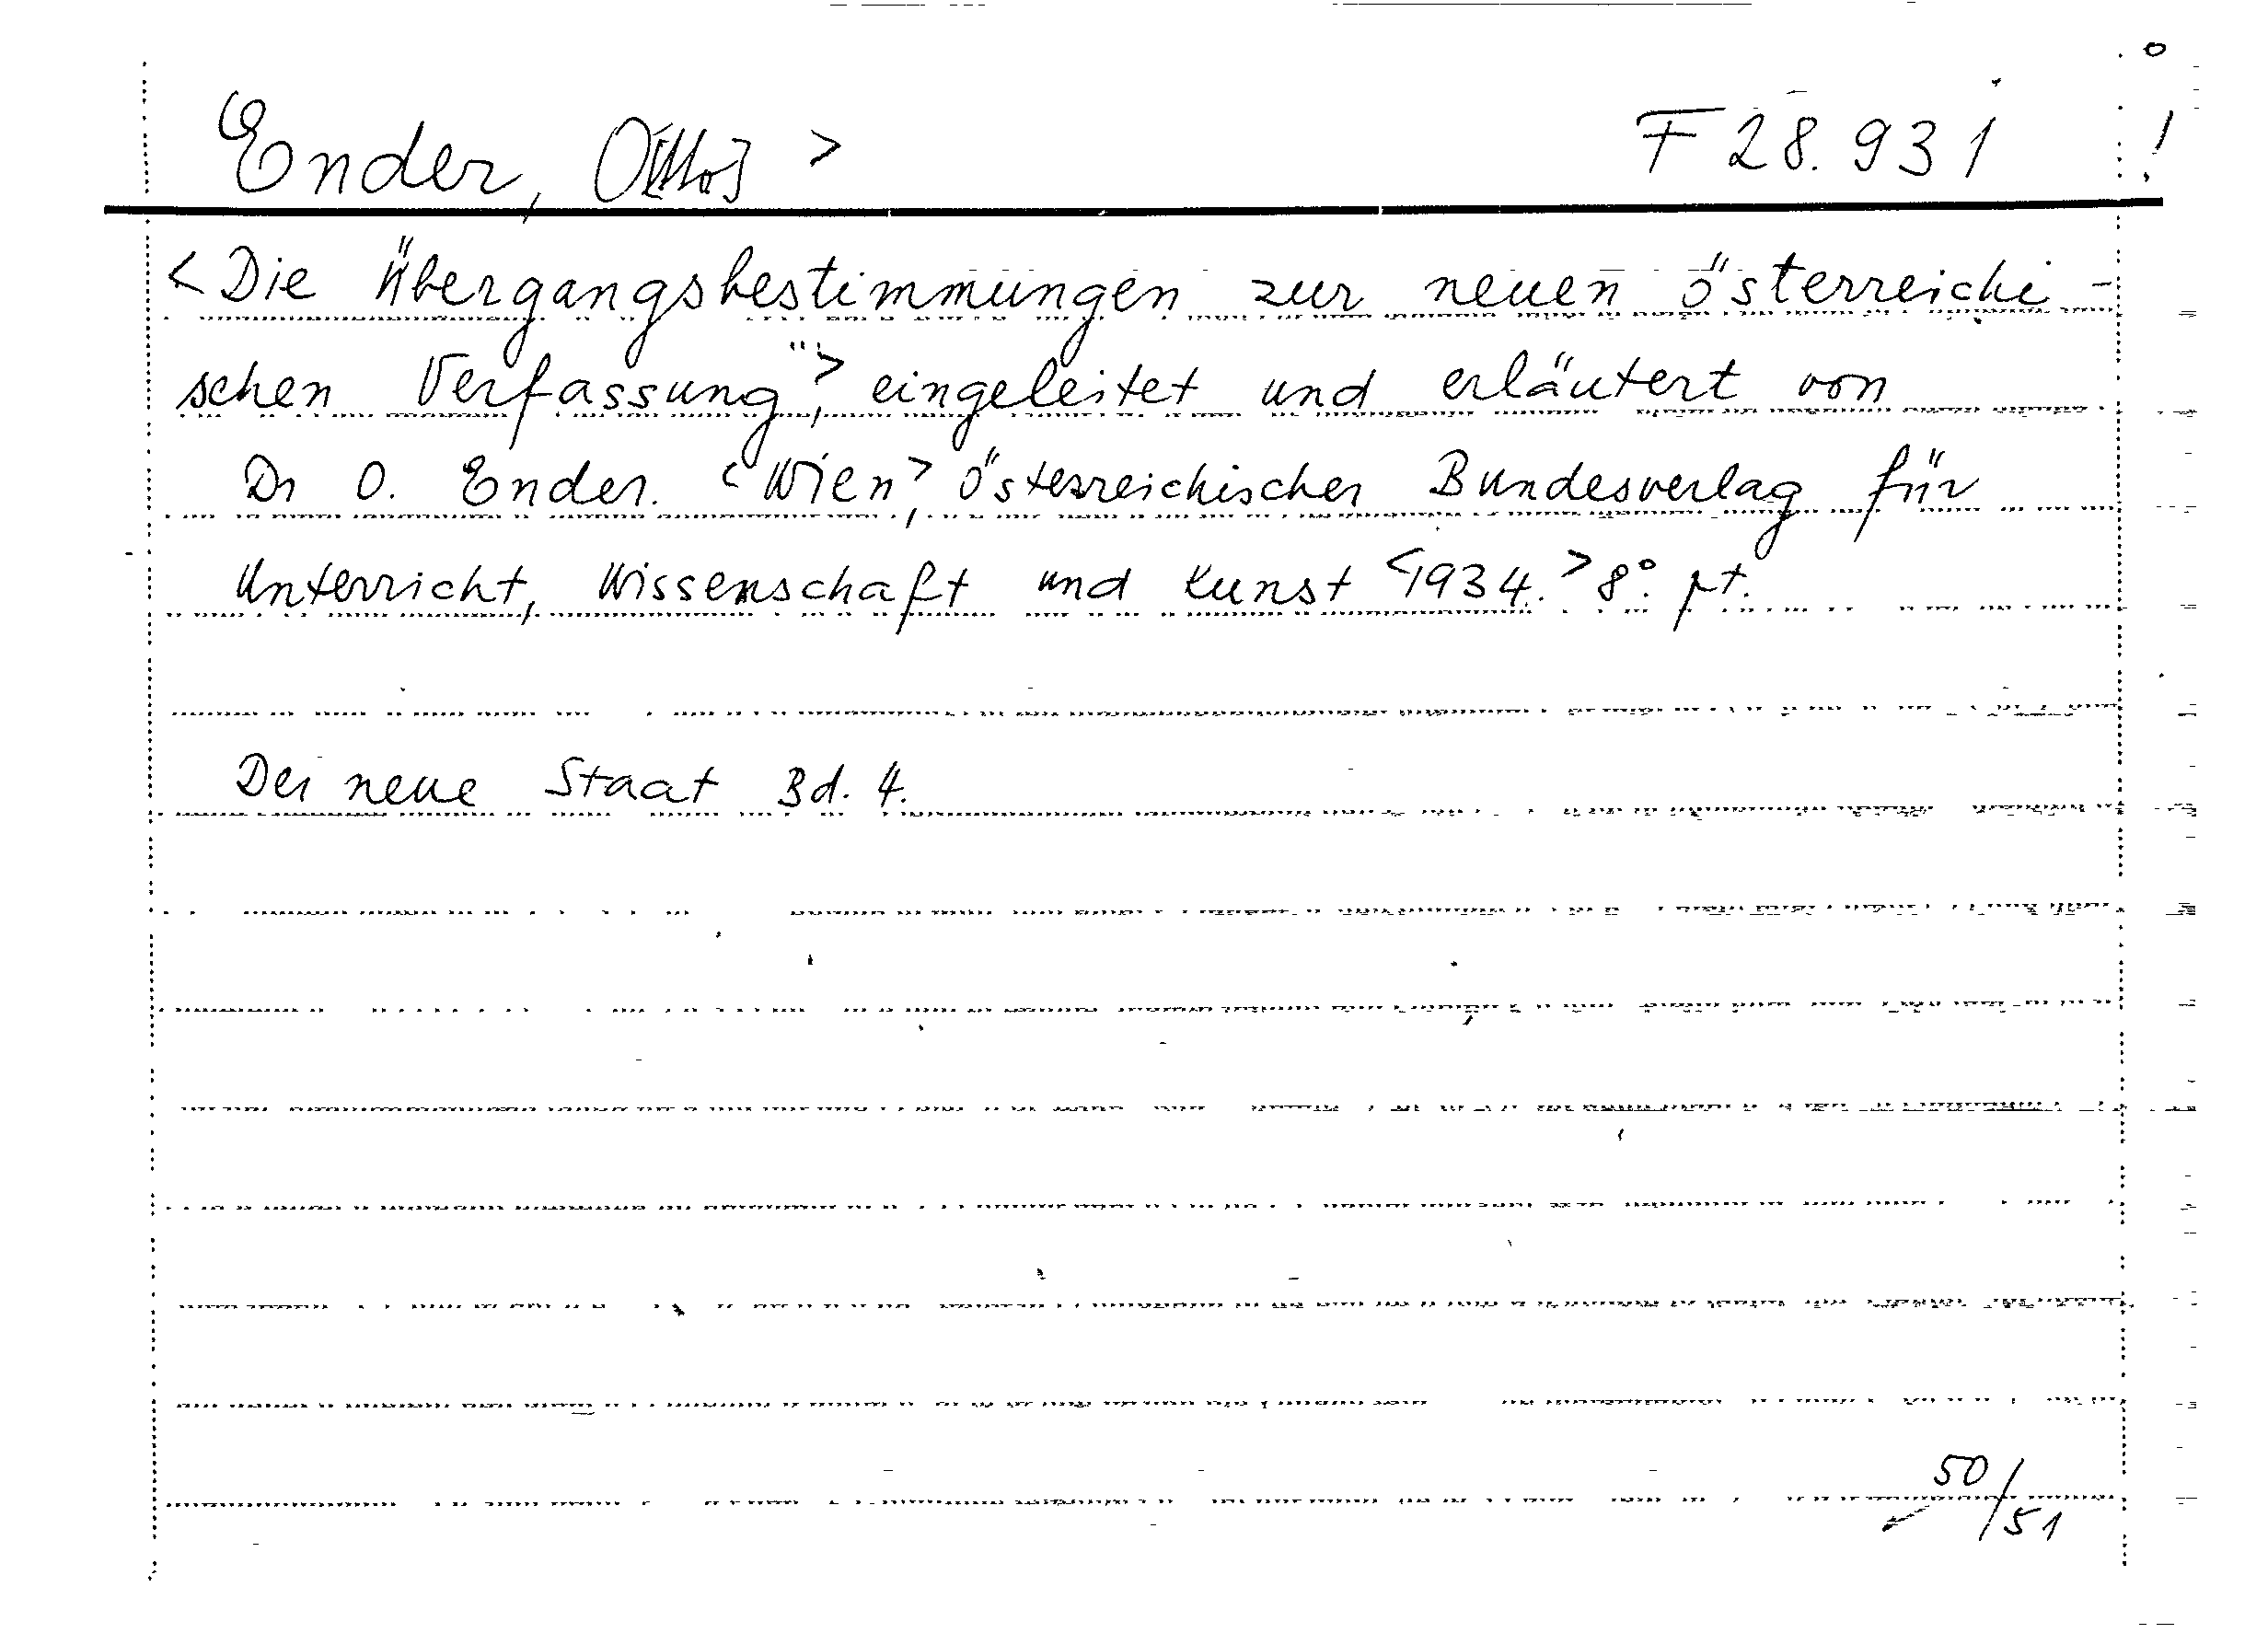 Ender, O[tto] > F 28.931 !
<Die Übergangsbestimmungen zur neuen österreichi-
schen Verfassung">, eingeleitet und erläutert von
Dr O. Ender. <Wien>, Österreichischer Bundesverlag für
Unterricht, Wissenschaft und Kunst <1934.> 8°. pt.
Der neue Staat Bd. 4.
50/51